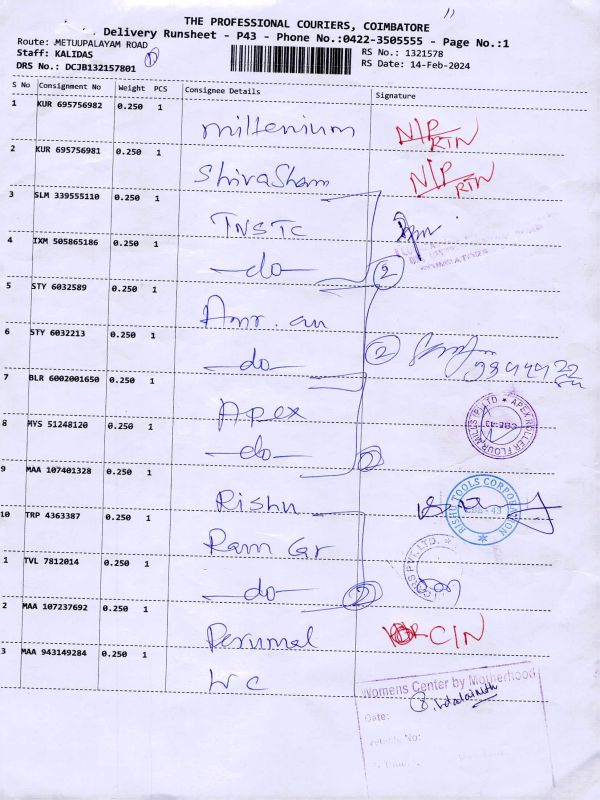 THE PROFESSIONAL COURIERS, COIMBATORE
Delivery Runsheet - P43 - Phone No.:0422-3505555 - Page No.:1
Route: METUUPALAYAM ROAD
Staff: KALIDAS
DRS No.: DCJB132157801
RS No.: 1321578
RS Date: 14-Feb-2024
S No Consignment No Weight PCS Consignee Details Signature
1 KUR 695756982 0.250 1 millenium N/P RTN
2 KUR 695756981 0.250 1 ShivaSham N/P RTN
3 SLM 339555110 0.250 1 TNSTC
4 IXM 505865186 0.250 1 -do- 2
5 STY 6032589 0.250 1
6 STY 6032213 0.250 1 -do- 2
7 BLR 6002001650 0.250 1 Apex
APEX ROLLER FLOUR MILLS (P) LTD CBE-43
8 MYS 51248120 0.250 1 -do- 2
9 MAA 107401328 0.250 1 Rishu
RISHI TOOLS CORPORATION CBE-43
10 TRP 4363387 0.250 1 Ram Gr
PVT. LTD.
1 TVL 7812014 0.250 1 -do- 2
2 MAA 107237692 0.250 1 Perumal CIN
3 MAA 943149284 0.250 1 WC
Womens Center by Motherhood
Date: